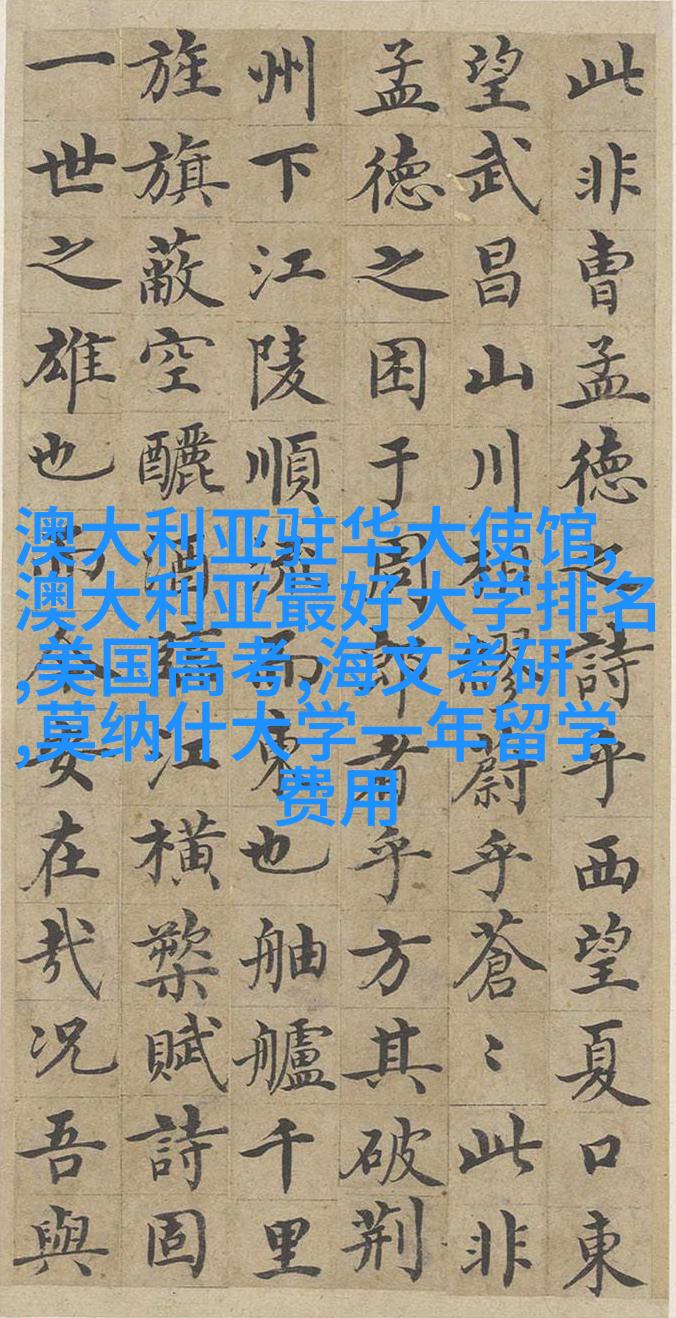 此非曹孟德之詩乎西望夏口東
望武昌山川相繆蔚乎蒼〻此非
孟德之困于周郎者乎方其破荆
州下江陵順流而東也舳艫千里
旌旗蔽空釃酒臨江横槊賦詩固
一世之雄也而今安在哉况吾與
澳大利亚驻华大使馆,
澳大利亚最好大学排名
,美国高考,海文考研
,莫纳什大学一年留学
费用